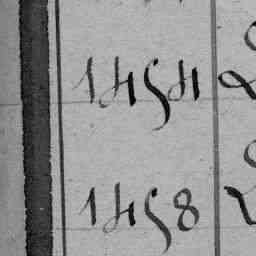 1454
1458